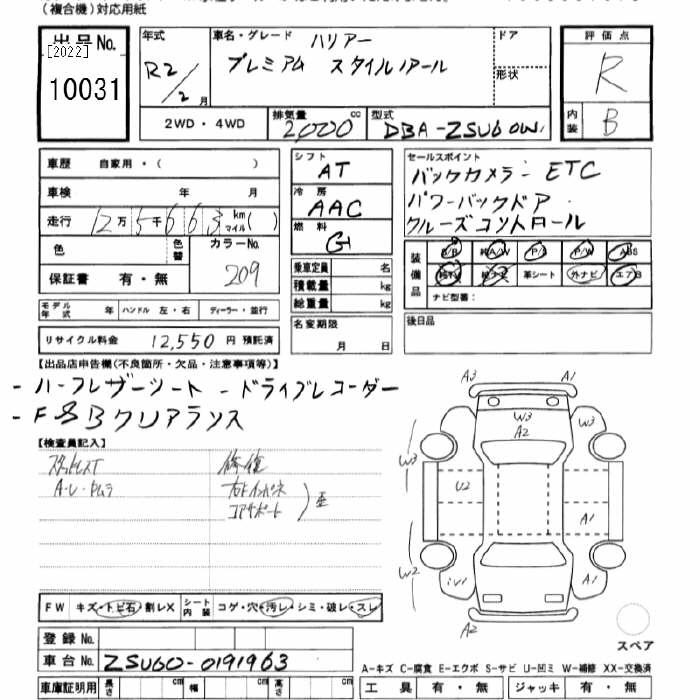 (複合機)対応用紙
出品No.
[2022]
10031
年式
R2/2 月
車名・グレード
ハリアー
プレミアム スタイルノアール
ドア
形状
評価点
R
内装
B
2WD・4WD
排気量
2000 cc
型式
DBA-ZSU60W
車歴 自家用・( )
車検 年 月
走行 12万5千663 km マイル( )
色 色替 カラーNo.
209
保証書 有・無
シフト
AT
冷房
AAC
燃料
G
乗車定員 名
積載量 kg
総重量 kg
セールスポイント
バックカメラ- ETC
パワーバックドア
クルーズコントロール
装備品
S/R 純A/W P/S P/W ABS
革シート 外ナビ エアB
ナビ型番:
モデル年式 年 ハンドル 左・右 ディーラー・並行
名変期限
月 日
後日品
リサイクル料金 12,550 円 預託済
【出品店申告欄(不良箇所・欠品・注意事項等)】
- ハーフレザーシート - ドライブレコーダー
- F&Bクリアランス
【検査員記入】
修復
A-U・トムラ
コアサポート
歪
A3 A1
W3
A2
W3 W3
U2
A1
W2
A1
A2
スペア
FW キズ・トビ石・割レX シート内装 コゲ・穴・汚レ・シミ・破レ・スレ
登録No.
車台No. ZSU60-0191963
A-キズ C-腐食 E-エクボ S-サビ U-凹ミ W-補修 XX-交換済
車庫証明用 長さ cm 幅 cm 高さ cm
工具 有・無 ジャッキ 有・無